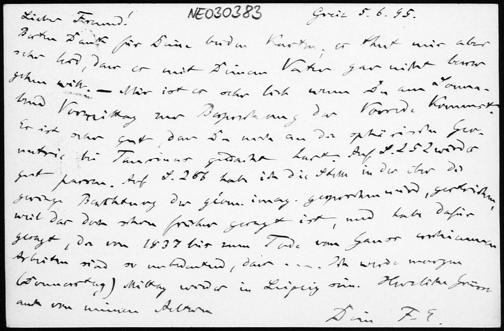 NE030383
Greiz 5. 6. 95.
Lieber Freund!
Besten Dank für Deine beiden Karten, es thut mir aber
sehr leid, dass es mit Deinem Vater gar nicht besser
gehen will. — Mir ist es sehr lieb wenn Du am Sonna-
bend Vormittag zur Besprechung der Vorrede kommst.
Es ist sehr gut, dass Du noch an die sphärische Geo-
metrie bei Taurinus gedacht hast. Auf S. 252 würde
gut passen. Auf S. 206 habe ich die Stelle in der über die
geringe Beachtung der geom. imag. gesprochen wird, gestrichen,
weil das dort schon früher gesagt ist, und habe dafür
gesagt, die von 1837 bis zum Tode von Gauss erschienenen
Arbeiten sind so unbedeutend, dass .... Ich werde morgen
(Donnerstag) Mittag wieder in Leipzig sein. Herzliche Grüsse
auch von meinen Aeltern
Dein F. E.